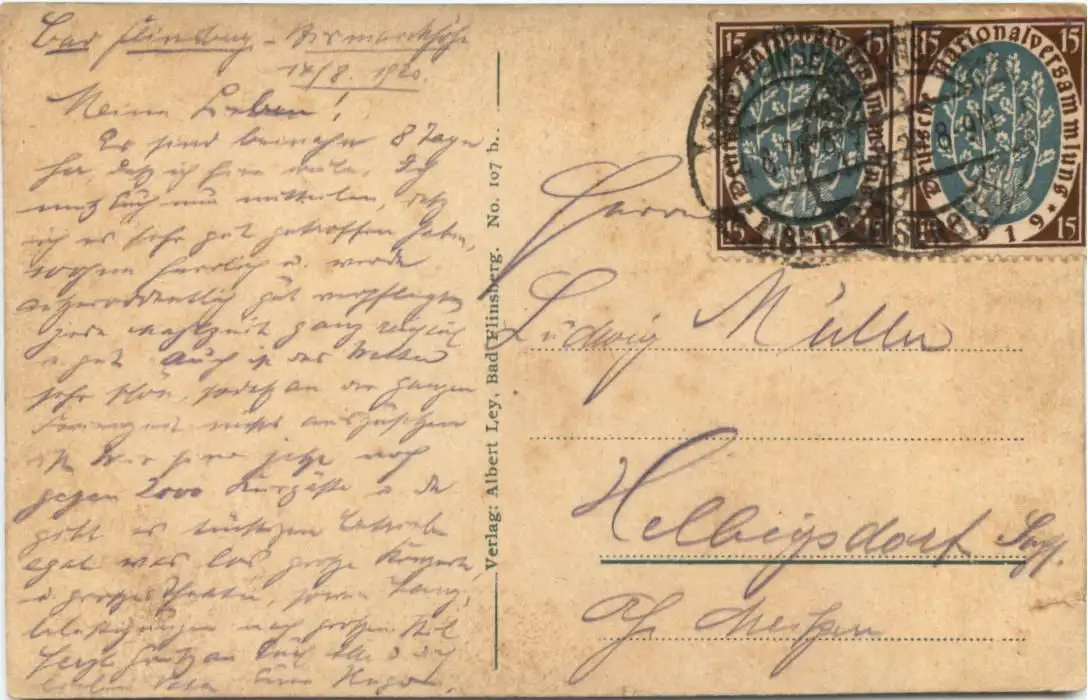 Bad Flinsberg - Bismarckhöhe
14/8. 1920.
Meine Lieben!
Es sind beinahe 8 Tage
her, daß ich hier weile. Ich
muß Euch nun mitteilen, daß
ich es sehr gut getroffen habe,
wohne herrlich u. werde
außerordentlich gut verpflegt,
jede Mahlzeit ganz reichlich
u. gut. Auch ist das Wetter
sehr schön, sodaß an der ganzen
Ferienzeit nichts auszusetzen
ist. Wir sind jetzt noch
gegen 2000 Kurgäste u. da
gibt es tüchtigen Betrieb
egal was los, große Konzerte,
u. großes Theater, sowie Tanz
nach großem Stil
Herzl. Euch alle
Euer Hugo.
Verlag: Albert Ley, Bad Flinsberg. No. 107 b.
15 15
Deutsche Nationalversammlung
1919
15 15
15 15
Deutsche Nationalversammlung
1919
15 15
Herrn
Ludwig Müller
Helbigsdorf
Meißen